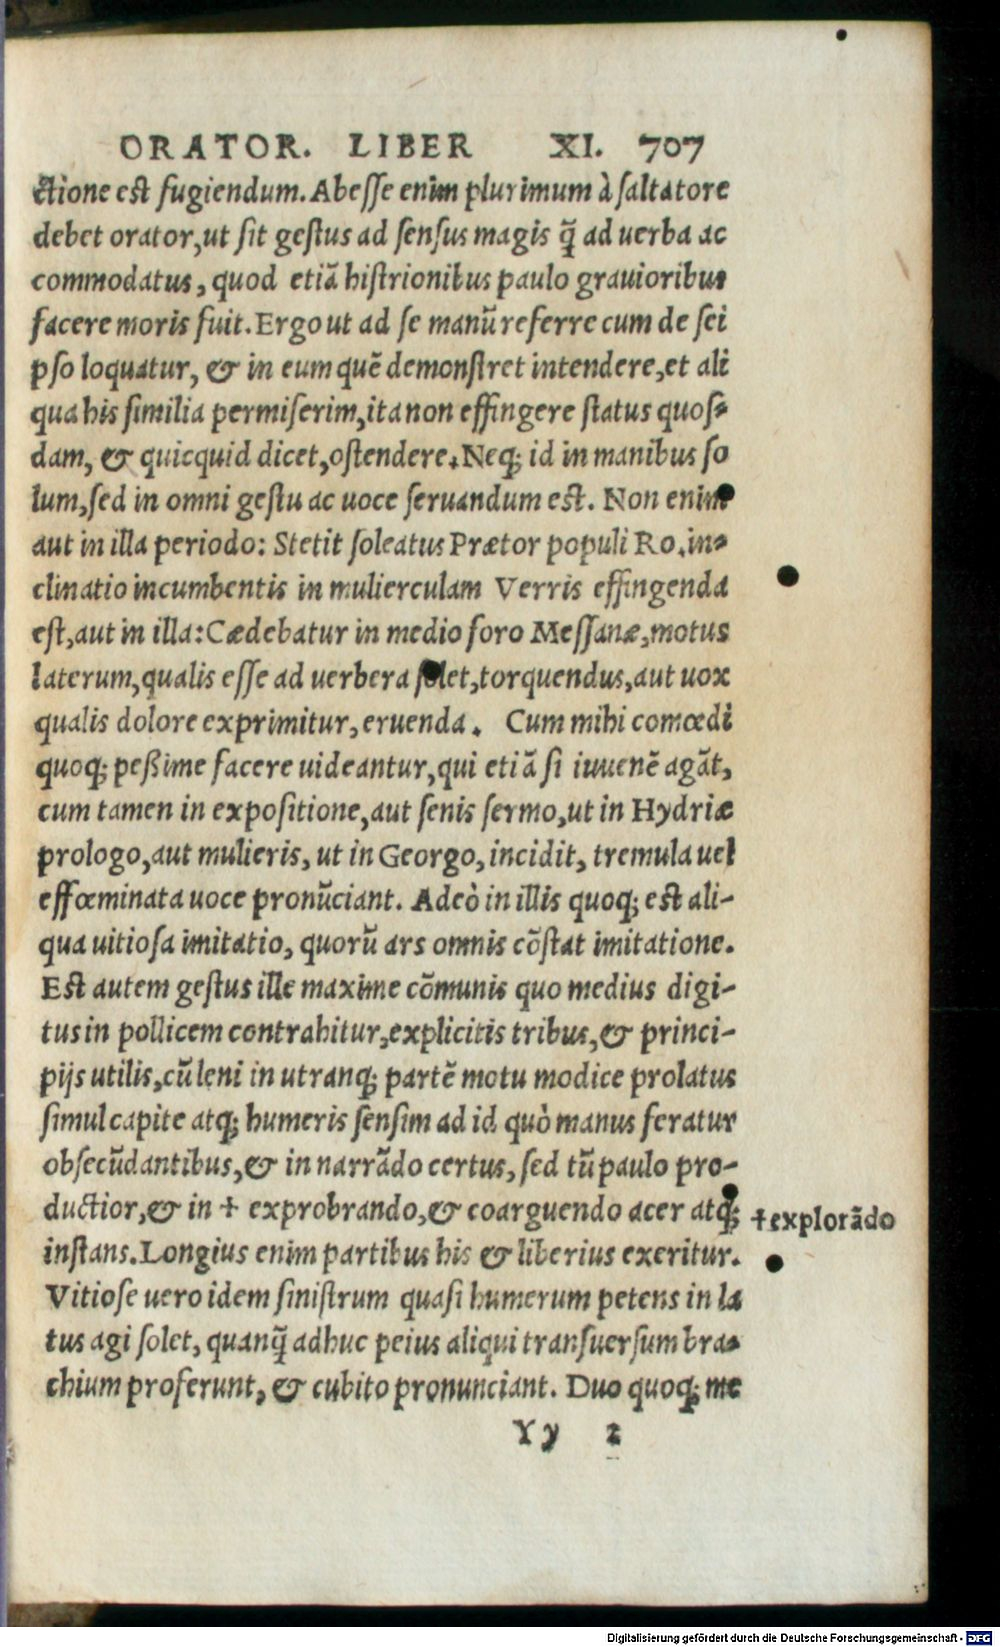 ORATOR. LIBER XI. 707
ctione est fugiendum. Abesse enim plurimum à saltatore
debet orator, ut sit gestus ad sensus magis q̃ ad uerba ac
commodatus, quod etiã histrionibus paulo grauioribus
facere moris fuit. Ergo ut ad se manũ referre cum de sei
pso loquatur, & in eum quẽ demonstret intendere, et ali
qua his similia permiserim, ita non effingere status quos-
dam, & quicquid dicet, ostendere. Neq; id in manibus so
lum, sed in omni gestu ac uoce seruandum est. Non enim
aut in illa periodo: Stetit soleatus Prætor populi Ro. in-
clinatio incumbentis in mulierculam Verris effingenda
est, aut in illa: Cædebatur in medio foro Messanæ, motus
laterum, qualis esse ad uerbera solet, torquendus, aut uox
qualis dolore exprimitur, eruenda. Cum mihi comœdi
quoq; peßime facere uideantur, qui etiã si iuuenẽ agãt,
cum tamen in expositione, aut senis sermo, ut in Hydriæ
prologo, aut mulieris, ut in Georgo, incidit, tremula uel
effœminata uoce pronũciant. Adeò in illis quoq; est ali-
qua uitiosa imitatio, quorũ ars omnis cõstat imitatione.
Est autem gestus ille maxime cõmunis quo medius digi-
tus in pollicem contrahitur, explicitis tribus, & princi-
pijs utilis, cũ leni in utranq; partẽ motu modice prolatus
simul capite atq; humeris sensim ad id quò manus feratur
obsecũdantibus, & in narrãdo certus, sed tũ paulo pro-
ductior, & in † exprobrando, & coarguendo acer atq;
†explorãdo
instans. Longius enim partibus his & liberius exeritur.
Vitiose uero idem sinistrum quasi humerum petens in la
tus agi solet, quanq̃ adhuc peius aliqui transuersum bra-
chium proferunt, & cubito pronunciant. Duo quoq; me
Yy 2
Digitalisierung gefördert durch die Deutsche Forschungsgemeinschaft - DFG